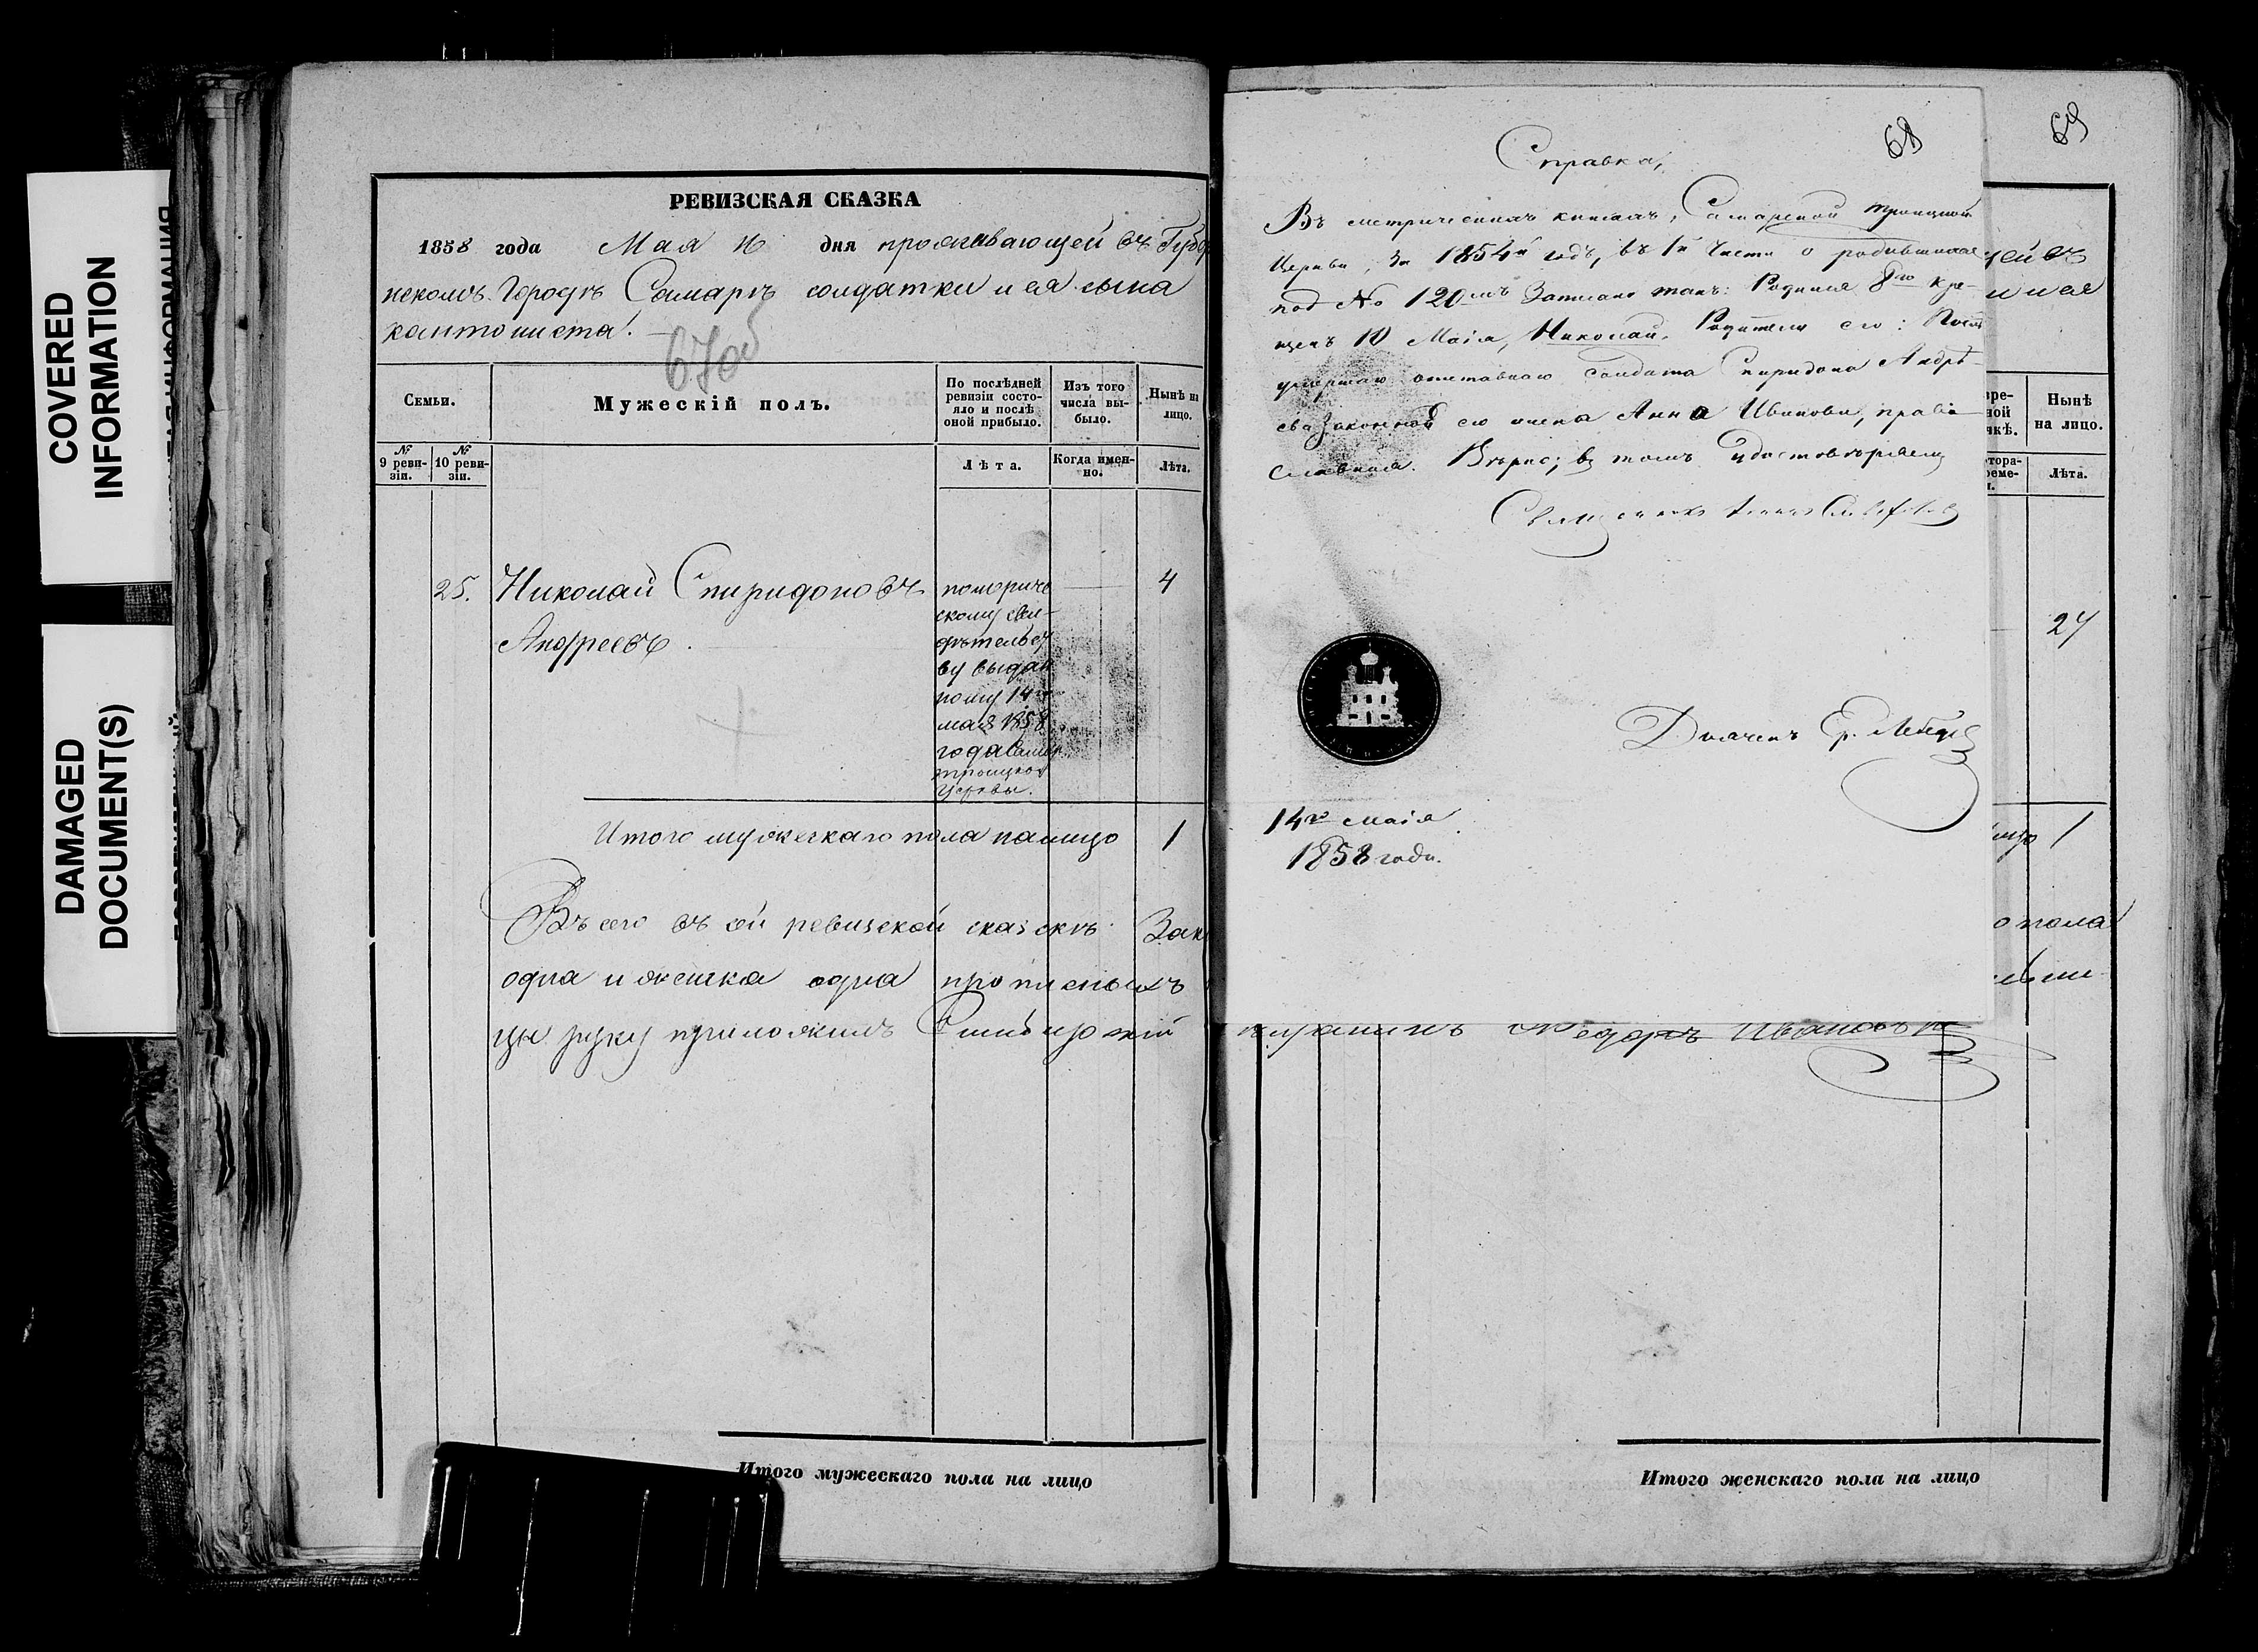 COVERED
INFORMATION
DAMAGED
DOCUMENT(S)
РЕВИЗСКАЯ СКАЗКА
1858 года Мая 16 дня проживающей въ Губер
нскомъ Городѣ Самарѣ солдатки и ея сына
кантониста.
67об
Семьи.
Мужескій полъ.
По послѣдней
ревизіи состо-
яло и послѣ
оной прибыло.
Изъ того
числа вы-
было.
Нынѣ на
лицо.
№
9 реви-
зіи.
№
10 реви-
зіи.
Лѣта.
Когда имен-
но.
Лѣта.
25. Николай Спиридоновъ
Андреевъ
4
пометриче
скому сви-
дѣтельст
ву выдан
ному 14го
мая 1858
года Самар
троицкой
церквы.
Итого мужескаго пола налицо 1
Въ сего въ сей ревизской сказскѣ
одна и женска одна прописныхъ
руку приложилъ
Справка,
68
Въ метрическихъ книгахъ, Самарской Троицкой
Церкви, За 1854й годъ, въ 1й Части о родившихся
под № 120мъ Записано такъ: Родился 8го кре-
щенъ 10 Маія, Николай. Родители его:
умершаго отставнаго Солдата Спиридона Андрѣ-
ева Законная его жена Анна Иванова, право-
славная. Вѣрно; въ томъ Удостовѣряемъ
Священникъ
Дьяконъ
14го маія
1858 года.
69
ей въ
и ея
Нынѣ
на лицо.
Лѣта.
24
1
о пола
Федоръ Ивановъ
Итого мужескаго пола на лицо
Итого женскаго пола на лицо